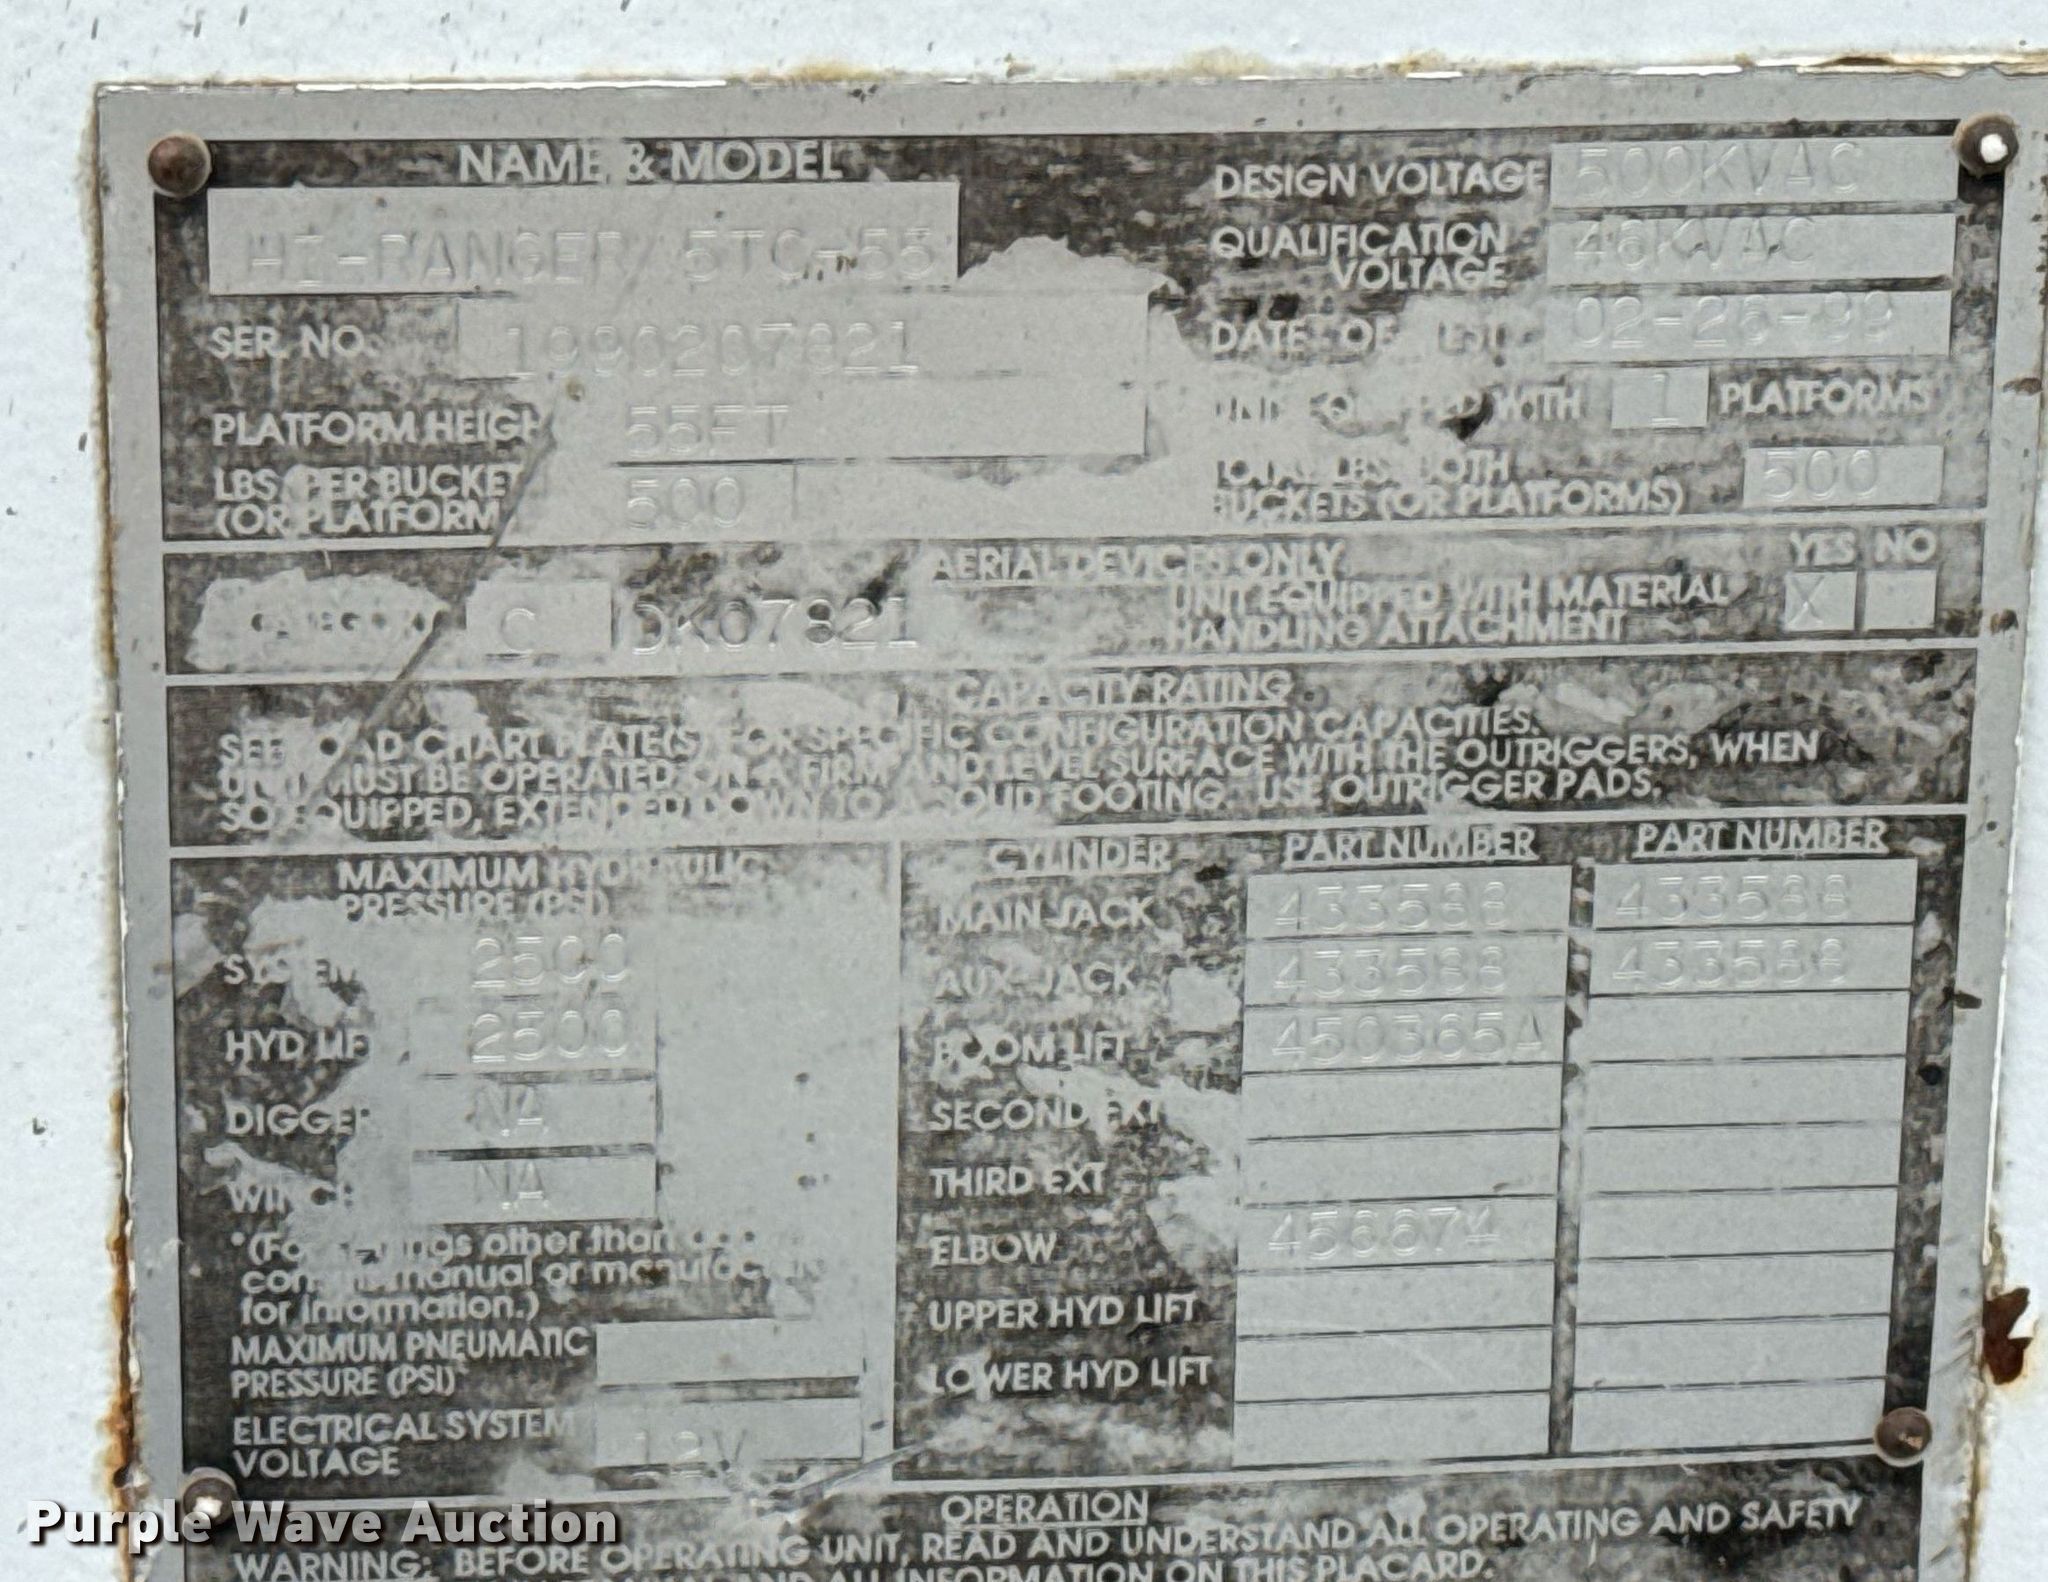 NAME & MODEL
HI-RANGER 5TC-55
DESIGN VOLTAGE 500KVAC
QUALIFICATION VOLTAGE 46KVAC
SER. NO. 1990207821
DATE OF TEST 02-26-99
PLATFORM HEIGH 55FT
EQUIPPED WITH 1 PLATFORMS
LBS. PER BUCKET
(OR PLATFORM 500
TOTAL LBS. BOTH
BUCKETS (OR PLATFORMS) 500
AERIAL DEVICES ONLY
YES NO
CATEGORY C DK07821
UNIT EQUIPPED WITH MATERIAL
HANDLING ATTACHMENT X
CAPACITY RATING
SEE LOAD CHART PLATE(S) FOR SPECIFIC CONFIGURATION CAPACITIES.
UNIT MUST BE OPERATED ON A FIRM AND LEVEL SURFACE WITH THE OUTRIGGERS, WHEN
SO EQUIPPED, EXTENDED DOWN TO A SOLID FOOTING. USE OUTRIGGER PADS.
MAXIMUM HYDRAULIC
PRESSURE (PSI)
SYSTEM 2500
HYD LIFT 2500
DIGGER NA
WINCH NA
*(For other than
manual or
for information.)
MAXIMUM PNEUMATIC
PRESSURE (PSI)
ELECTRICAL SYSTEM
VOLTAGE 12V
CYLINDER PART NUMBER PART NUMBER
MAIN JACK 433588 433588
AUX JACK 433588 433588
BOOM LIFT 450365A
SECOND EXT
THIRD EXT
ELBOW 456674
UPPER HYD LIFT
LOWER HYD LIFT
OPERATION
WARNING: BEFORE OPERATING UNIT, READ AND UNDERSTAND ALL OPERATING AND SAFETY
AND ALL INFORMATION ON THIS PLACARD.
Purple Wave Auction